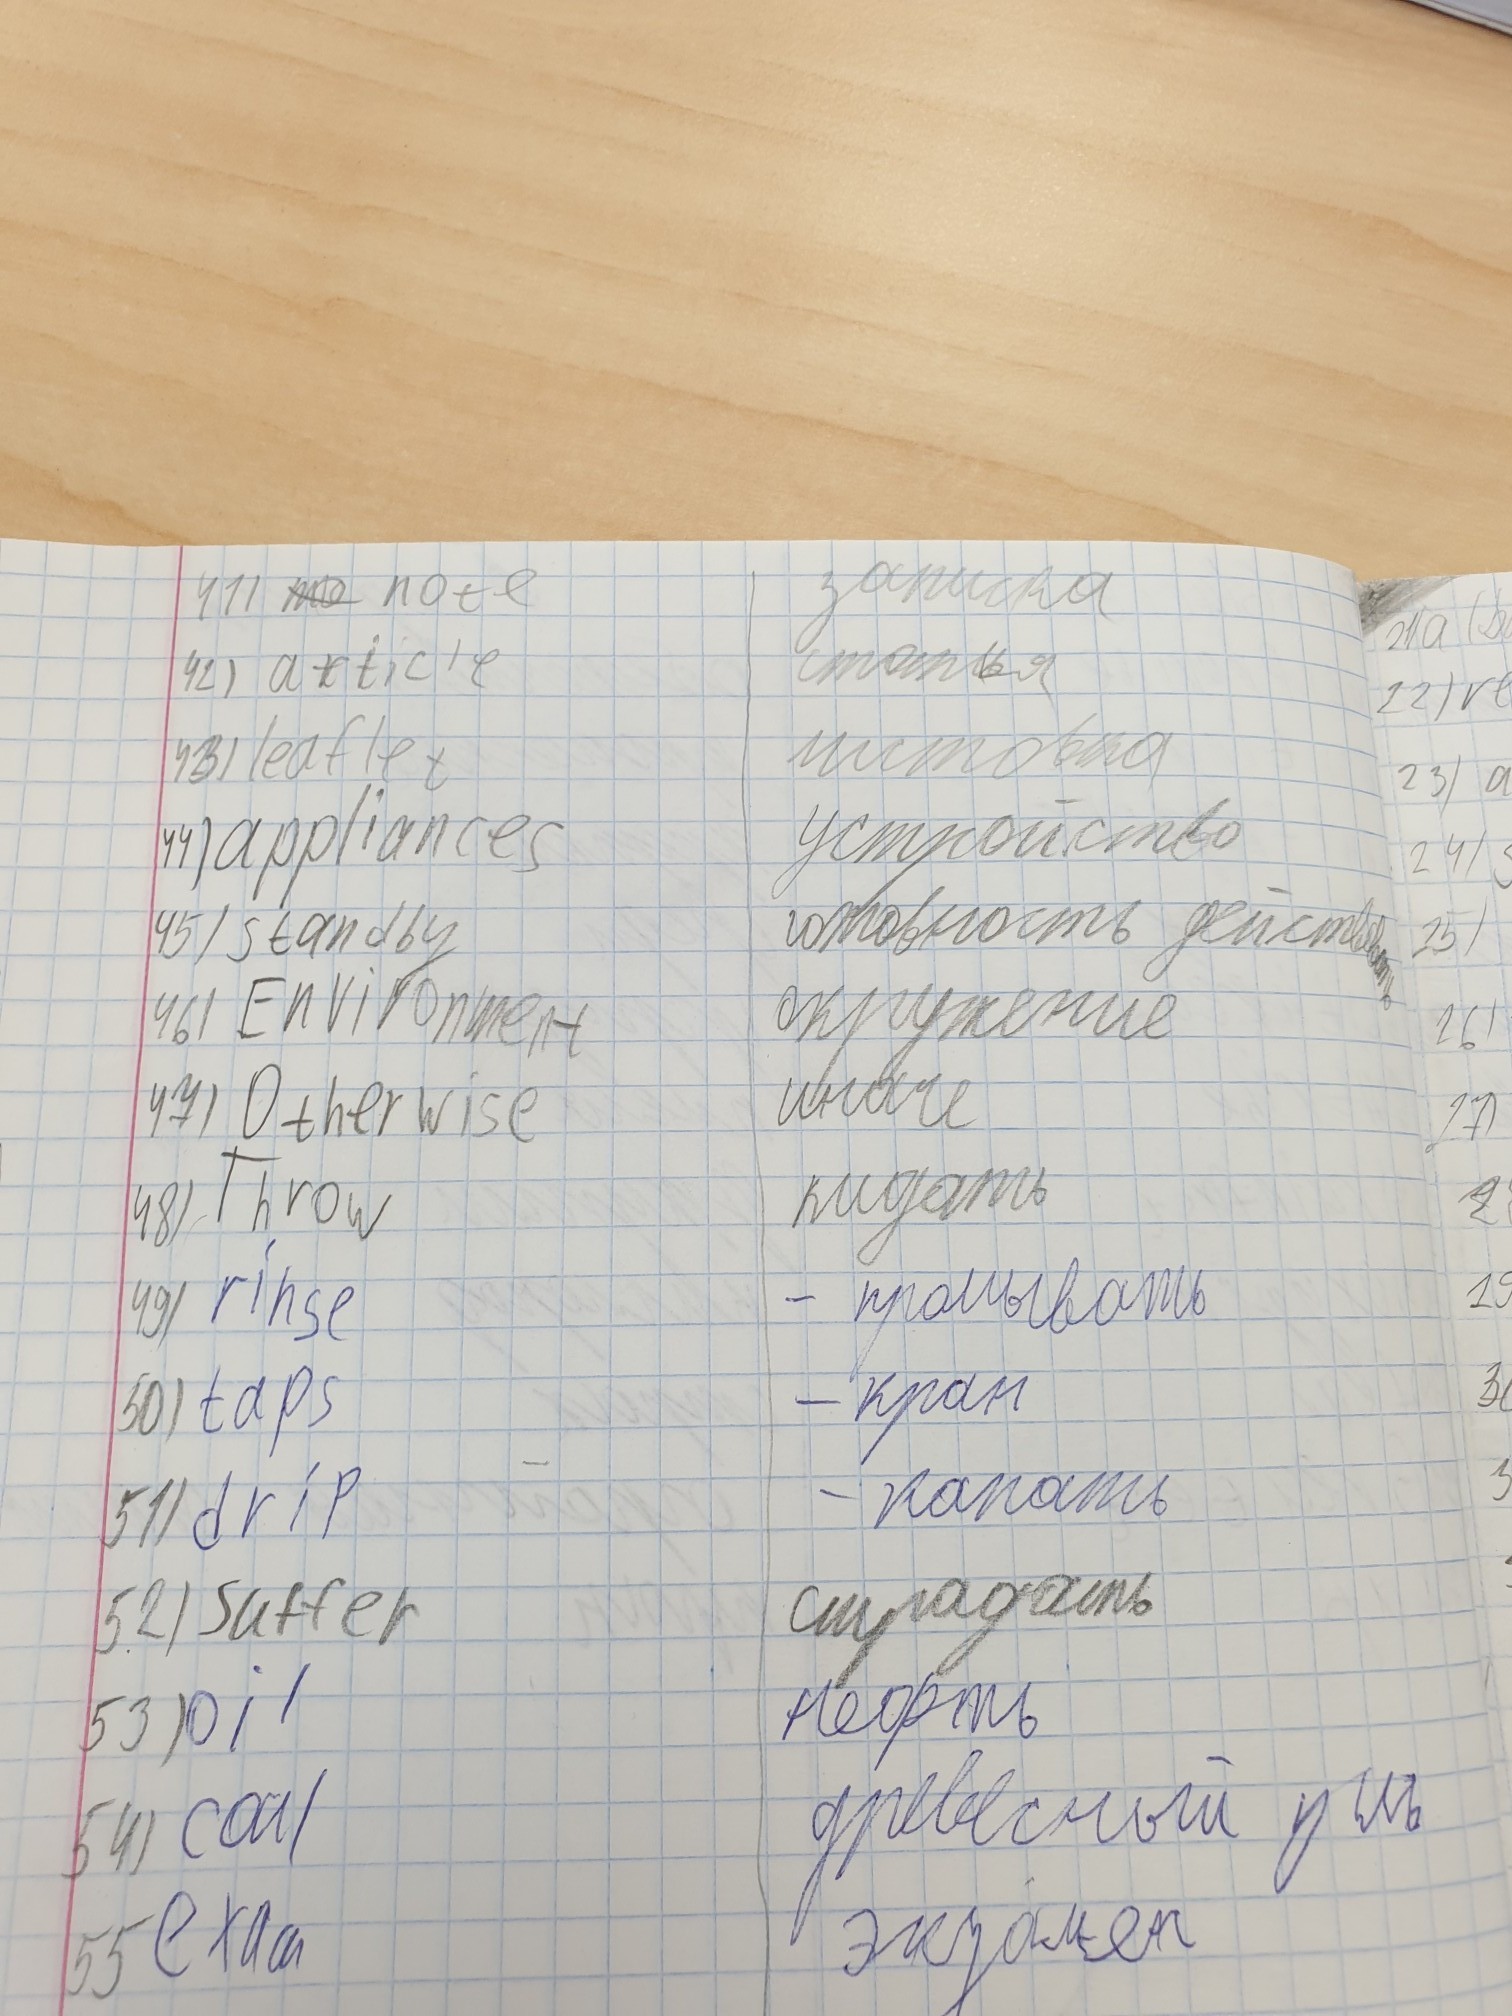 41) note записка
42) article статья
43) leaflet листовка
44) appliances устройство
45) standby готовность действовать
46) Environment окружение
47) Otherwise иначе
48) Throw кидать
49) rinse - промывать
50) taps - кран
51) drip - капать
52) suffer страдать
53) oil нефть
54) coal древесный уголь
55 exam экзамен
21)a
22) re
23) a
24) s
25)
26)
27)